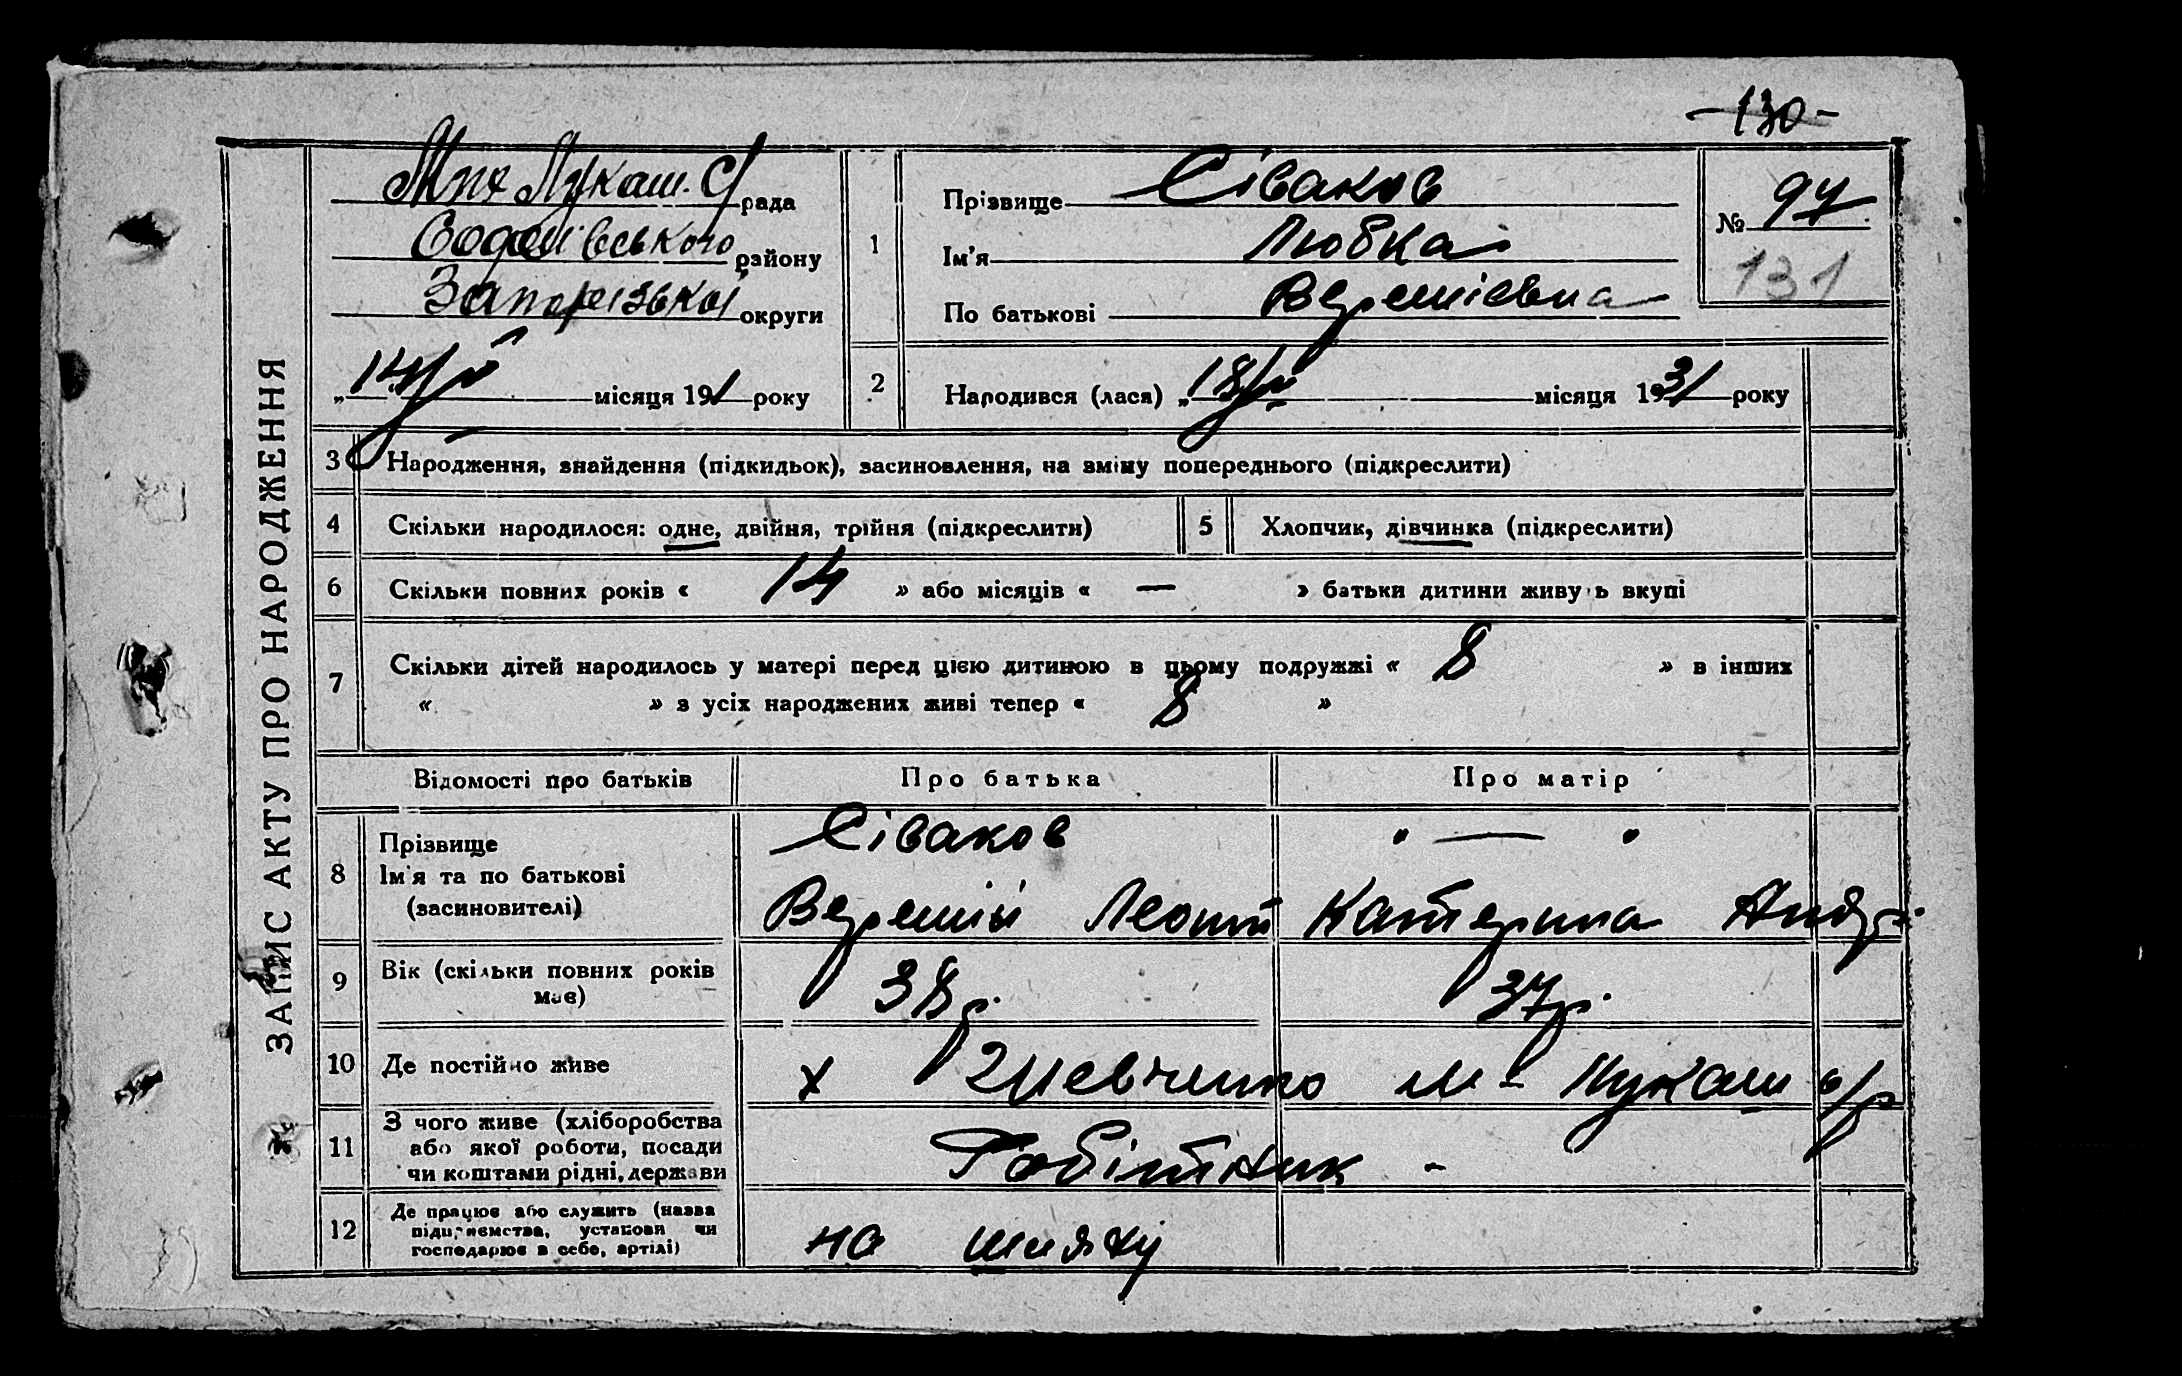 -130-
ЗАПИС АКТУ ПРО НАРОДЖЕННЯ
Мих Лукаш. С/рада
Софоївського району
Запорізької округи
1
Прізвище Сіваков
Ім'я Любка
По батькові Веремієвна
№ 97
131
" 14/ місяця 191 року
2
Народився (лася) „ 18/ місяця 1931 року
3 Народження, знайдення (підкидьок), засиновлення, на зміну попереднього (підкреслити)
4 Скільки народилося: одне, двійня, трійня (підкреслити) 5 Хлопчик, дівчинка (підкреслити)
6 Скільки повних років « 14 » або місяців « — » батьки дитини живуть вкупі
7 Скільки дітей народилось у матері перед цією дитиною в цьому подружжі « 8 » в інших
« » з усіх народжених живі тепер « 8 »
Відомості про батьків Про батька Про матір
8 Прізвище
Ім'я та по батькові
(засиновителі)
Сіваков " — "
Веремій Леонт Катерина Андр.
9 Вік (скільки повних років
має)
38р. 37р.
10 Де постійно живе
х Шевченко М - Лукаш с/р
11 З чого живе (хліборобства
або якої роботи, посади
чи коштами рідні, держави
Робітник -
12 Де працює або служить (назва
підприємства, установи чи
господарює в себе, артілі)
на шляху